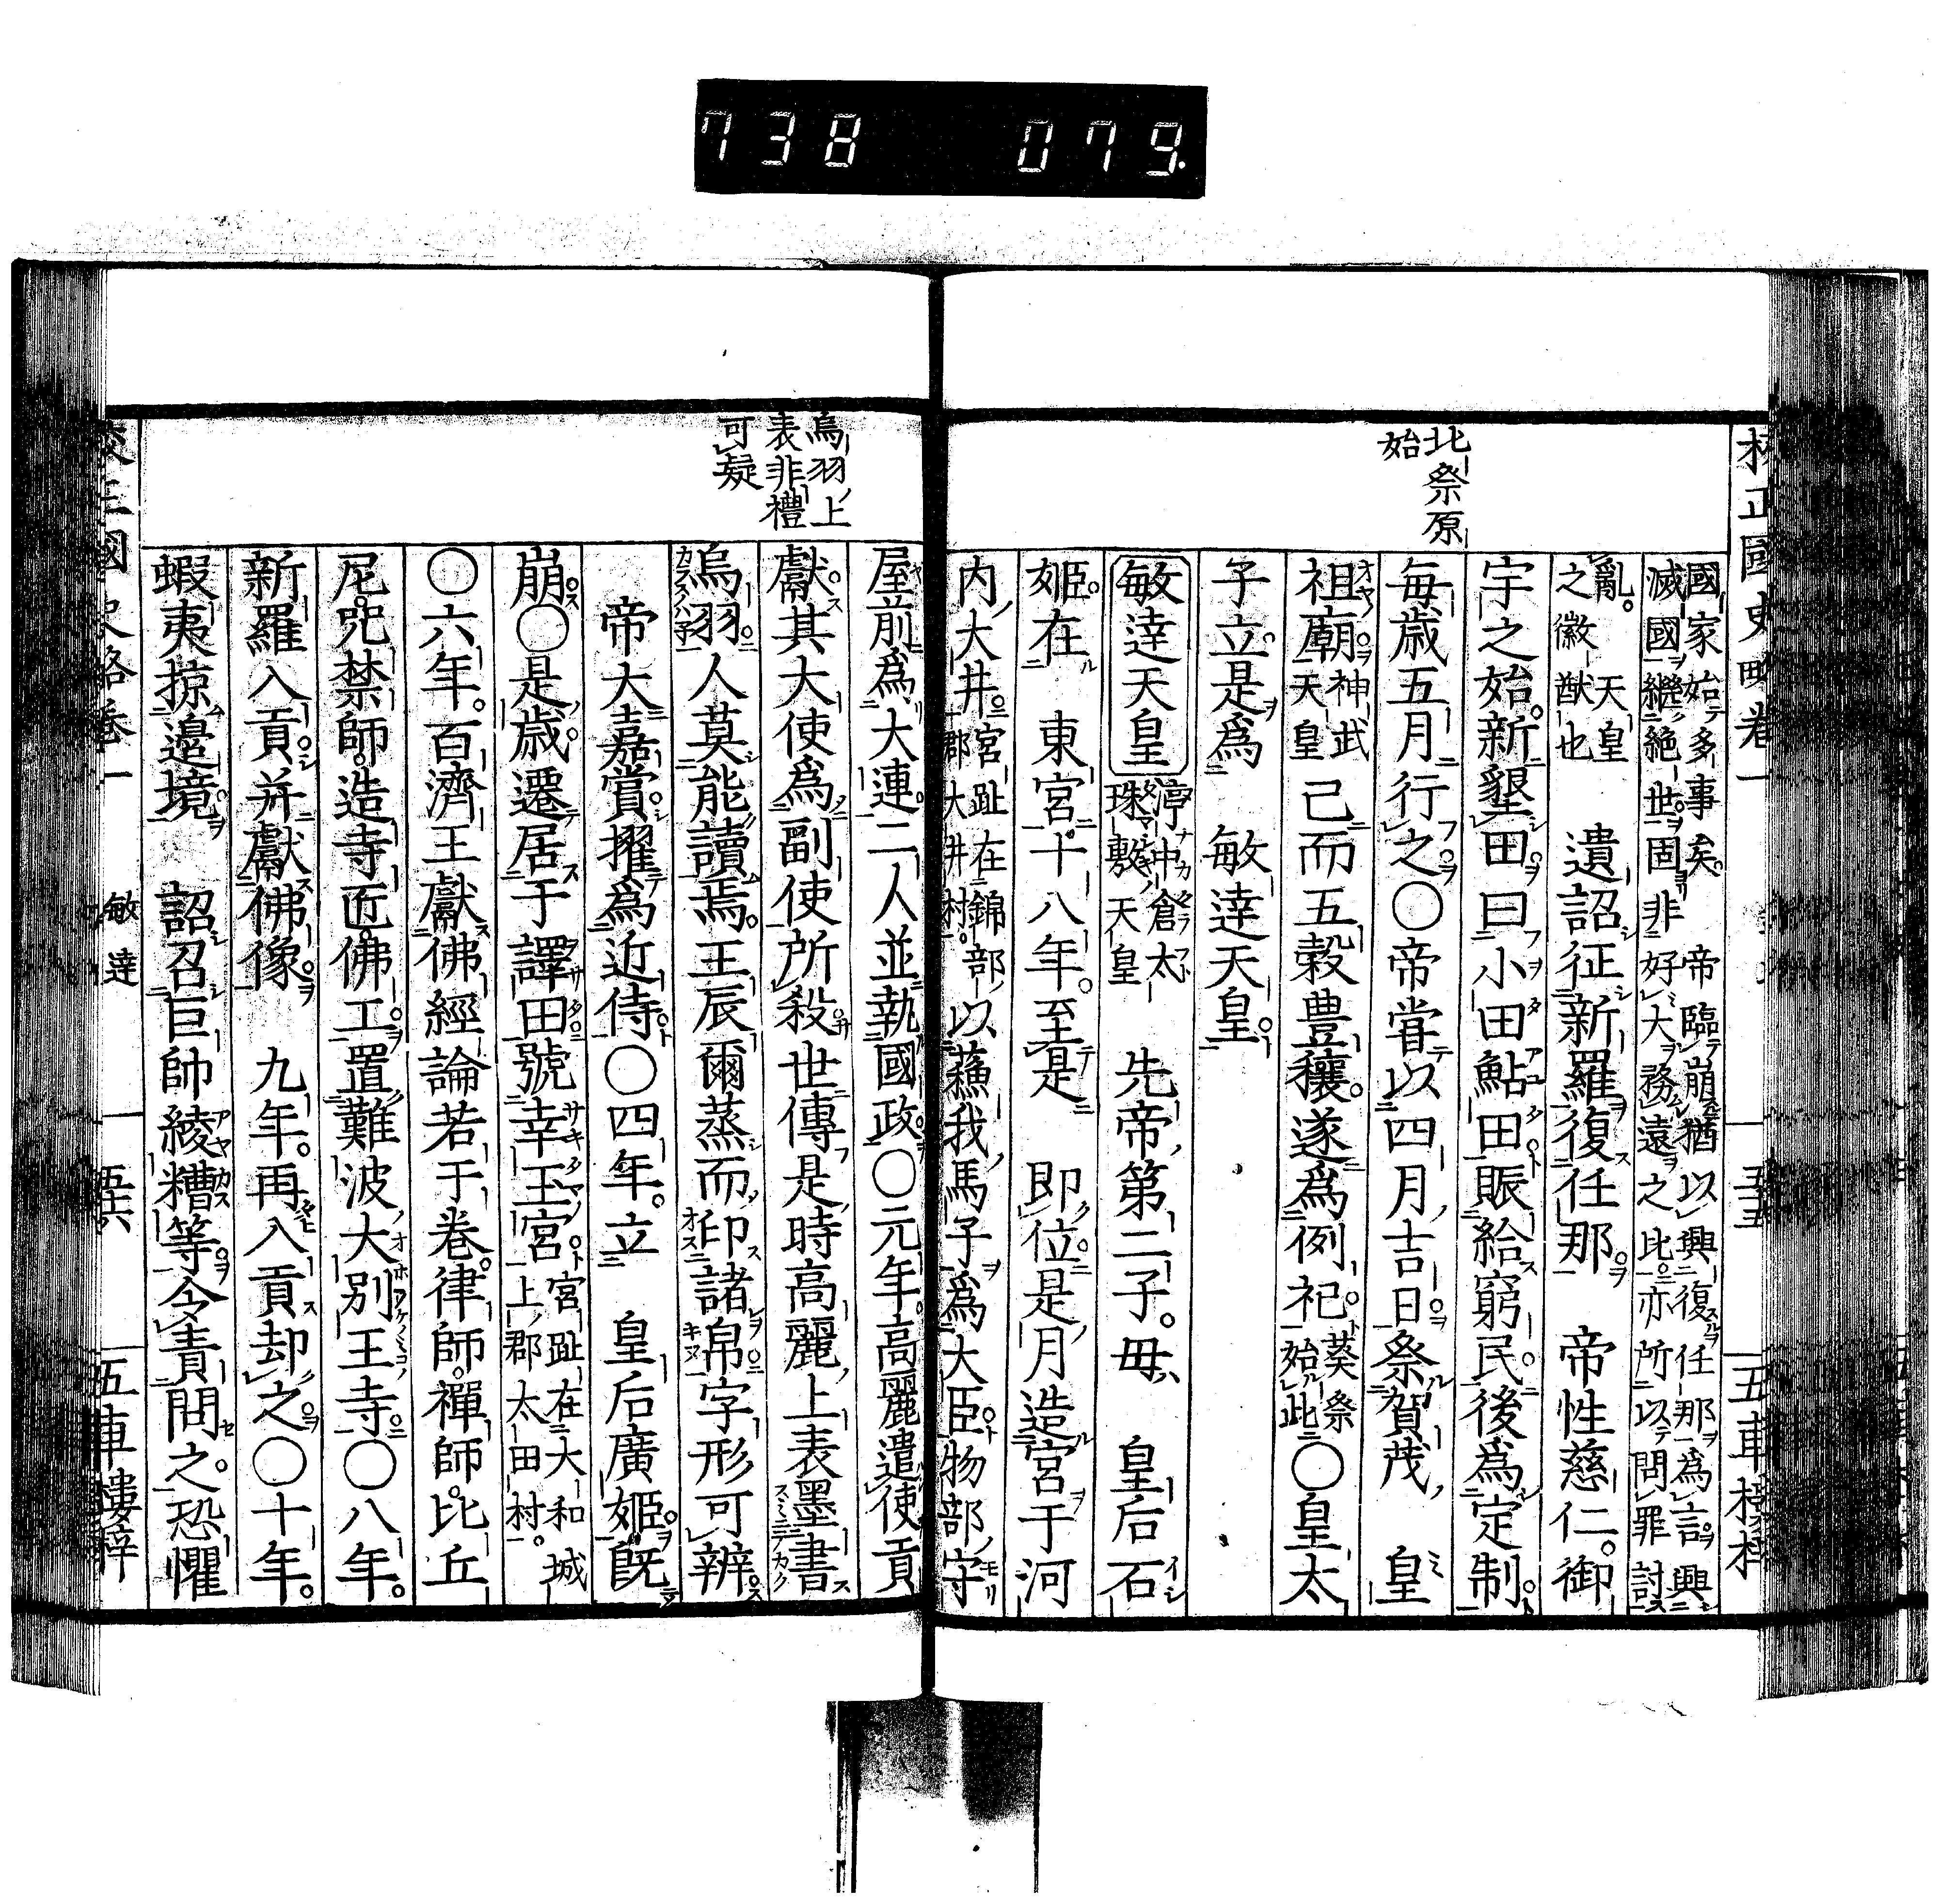 738 079.
校正國史略卷一
五十五
五車樓梓
北祭原
始
國家始多事矣。 帝臨崩猶以興復任那爲言興
滅國繼絶世固非好大務遠之比亦所以問罪討
亂。 天皇
之徽猷也 遺詔征新羅復任那 帝性慈仁。御
宇之始。新墾田曰小田鮎田賑給窮民後爲定制
每歲五月行之〇帝嘗以四月吉日祭賀茂 皇
祖廟神武天皇已而五穀豐穰。遂爲例祀葵祭始此〇皇太
子立是爲 敏達天皇
敏達天皇渟中倉太珠敷天皇 先帝第二子。母 皇后石
姬。在 東宮十八年。至是 即位是月造宮于河
內大井宮趾在錦部郡大井村。以蘇我馬子爲大臣物部守
烏羽上
表非禮
可疑
屋前爲大連二人並執國政〇元年。高麗遣使貢
獻其大使爲副使所殺世傳是時高麗上表墨書
烏羽人莫能讀焉。王辰爾蒸而印諸帛字形可辨
帝大嘉賞擢爲近侍〇四年。立 皇后廣姬。旣
崩〇是歲。遷居于譯田號幸玉宮宮趾在大和城上郡太田村。
〇六年。百濟王獻佛經論若干卷。律師。禪師。比丘
尼。咒禁師。造寺匠。佛工置難波大別王寺〇八年。
新羅入貢并獻佛像 九年。再入貢却之〇十年。
蝦夷掠邊境 詔召巨帥綾糟等。令責問之。恐懼
校正國史略卷一
敏達
五十六
五車樓梓